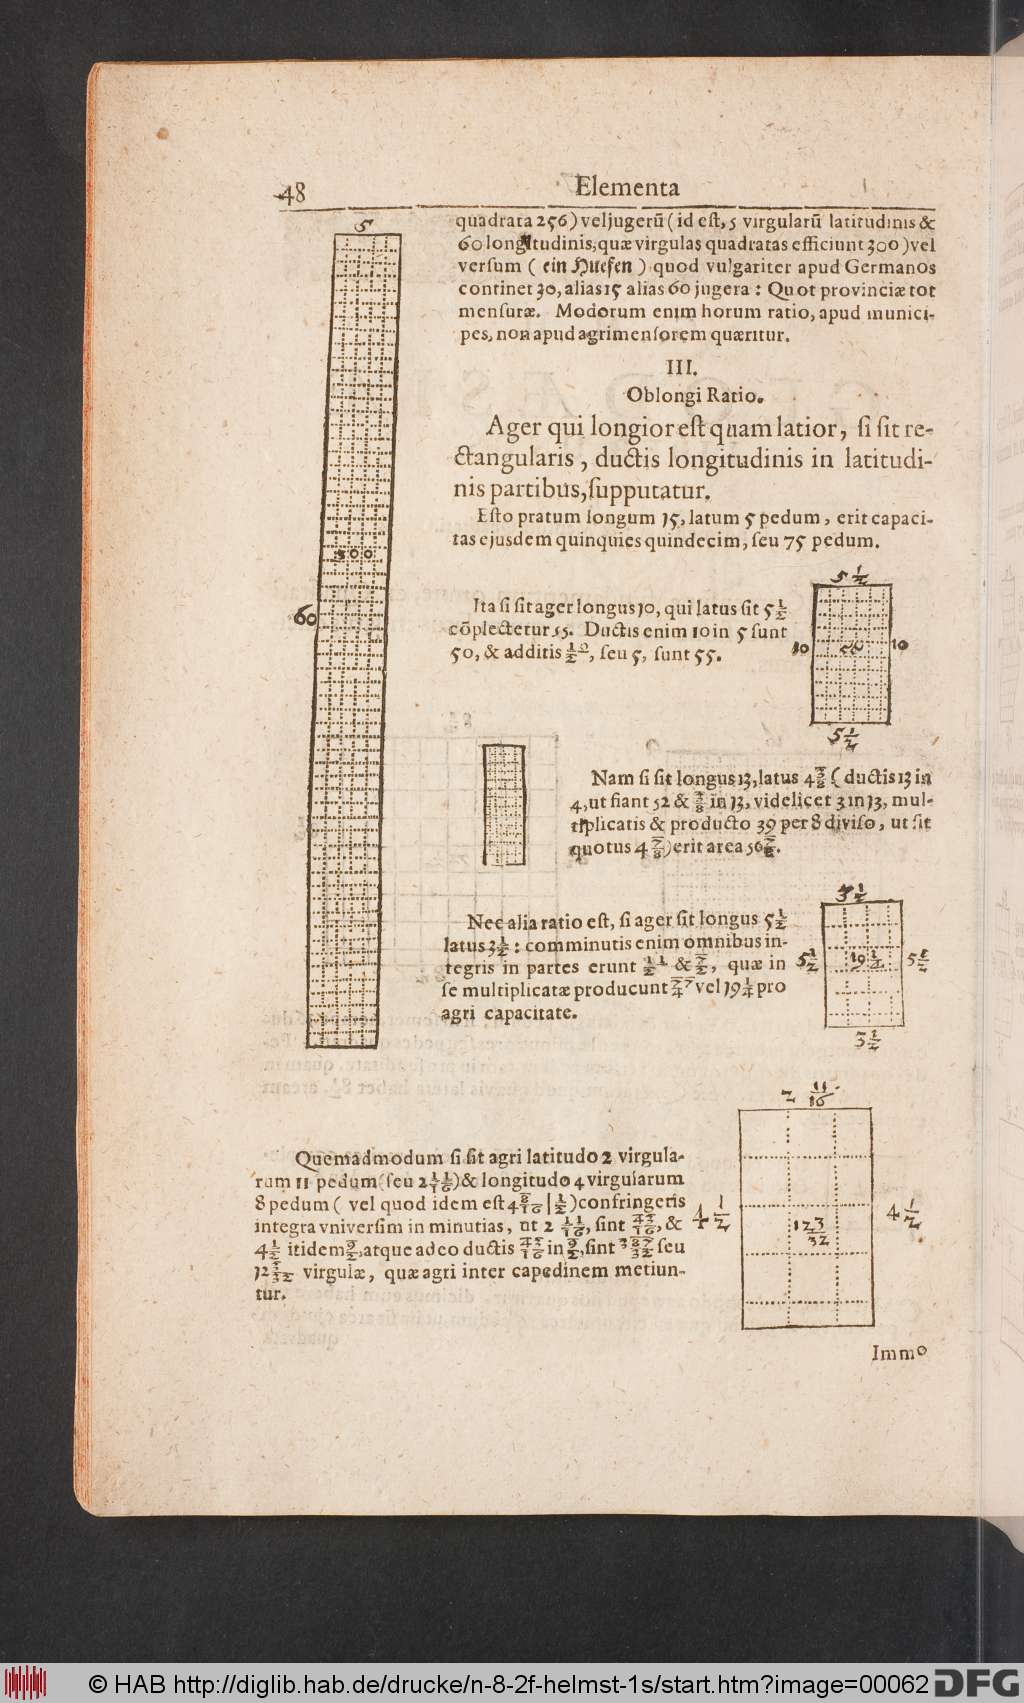 48
Elementa
5
quadrata 256) vel jugerũ (id est, 5 virgularũ latitudinis &
60 longitudinis, quæ virgulas quadratas efficiunt 300) vel
versum (ein Huefen) quod vulgariter apud Germanos
continet 30, alias 15 alias 60 jugera: Quot provinciæ tot
mensuræ. Modorum enim horum ratio, apud munici-
pes, non apud agrimensorem quæritur.
III.
Oblongi Ratio.
Ager qui longior est quam latior, si sit re-
ctangularis, ductis longitudinis in latitudi-
nis partibus, supputatur.
Esto pratum longum 15, latum 5 pedum, erit capaci-
tas ejusdem quinquies quindecim, seu 75 pedum.
300
60
5 1/2
Ita si sit ager longus 10, qui latus sit 5 1/2
cõplectetur 55. Ductis enim 10 in 5 sunt
50, & additis 10/2, seu 5, sunt 55.
10
10
5 1/2
Nam si sit longus 13, latus 4 3/8 (ductis 13 in
4, ut fiant 52 & 3/8 in 13, videlicet 3 in 13, mul-
tiplicatis & producto 39 per 8 diviso, ut sit
quotus 4 7/8) erit area 56 7/8.
3 1/2
Nec alia ratio est, si ager sit longus 5 1/2
latus 3 1/2: comminutis enim omnibus in-
tegris in partes erunt 11/2 & 7/2, quæ in
se multiplicatæ producunt 77/4 vel 19 1/4 pro
agri capacitate.
5 1/2
19 1/2
5 1/2
3 1/2
2 11/16
Quemadmodum si sit agri latitudo 2 virgula-
rum 11 pedum (seu 2 11/16) & longitudo 4 virgularum
8 pedum (vel quod idem est 4 8/16 | 1/2) confringeris
integra vniversim in minutias, ut 2 11/16, sint 43/16, &
4 1/2 itidem 9/2, atque adeo ductis 43/16 in 9/2, sint 387/32 seu
12 3/32 virgulæ, quæ agri inter capedinem metiun-
tur.
4 1/2
12 3/32
4 1/2
Immo
© HAB http://diglib.hab.de/drucke/n-8-2f-helmst-1s/start.htm?image=00062
DFG